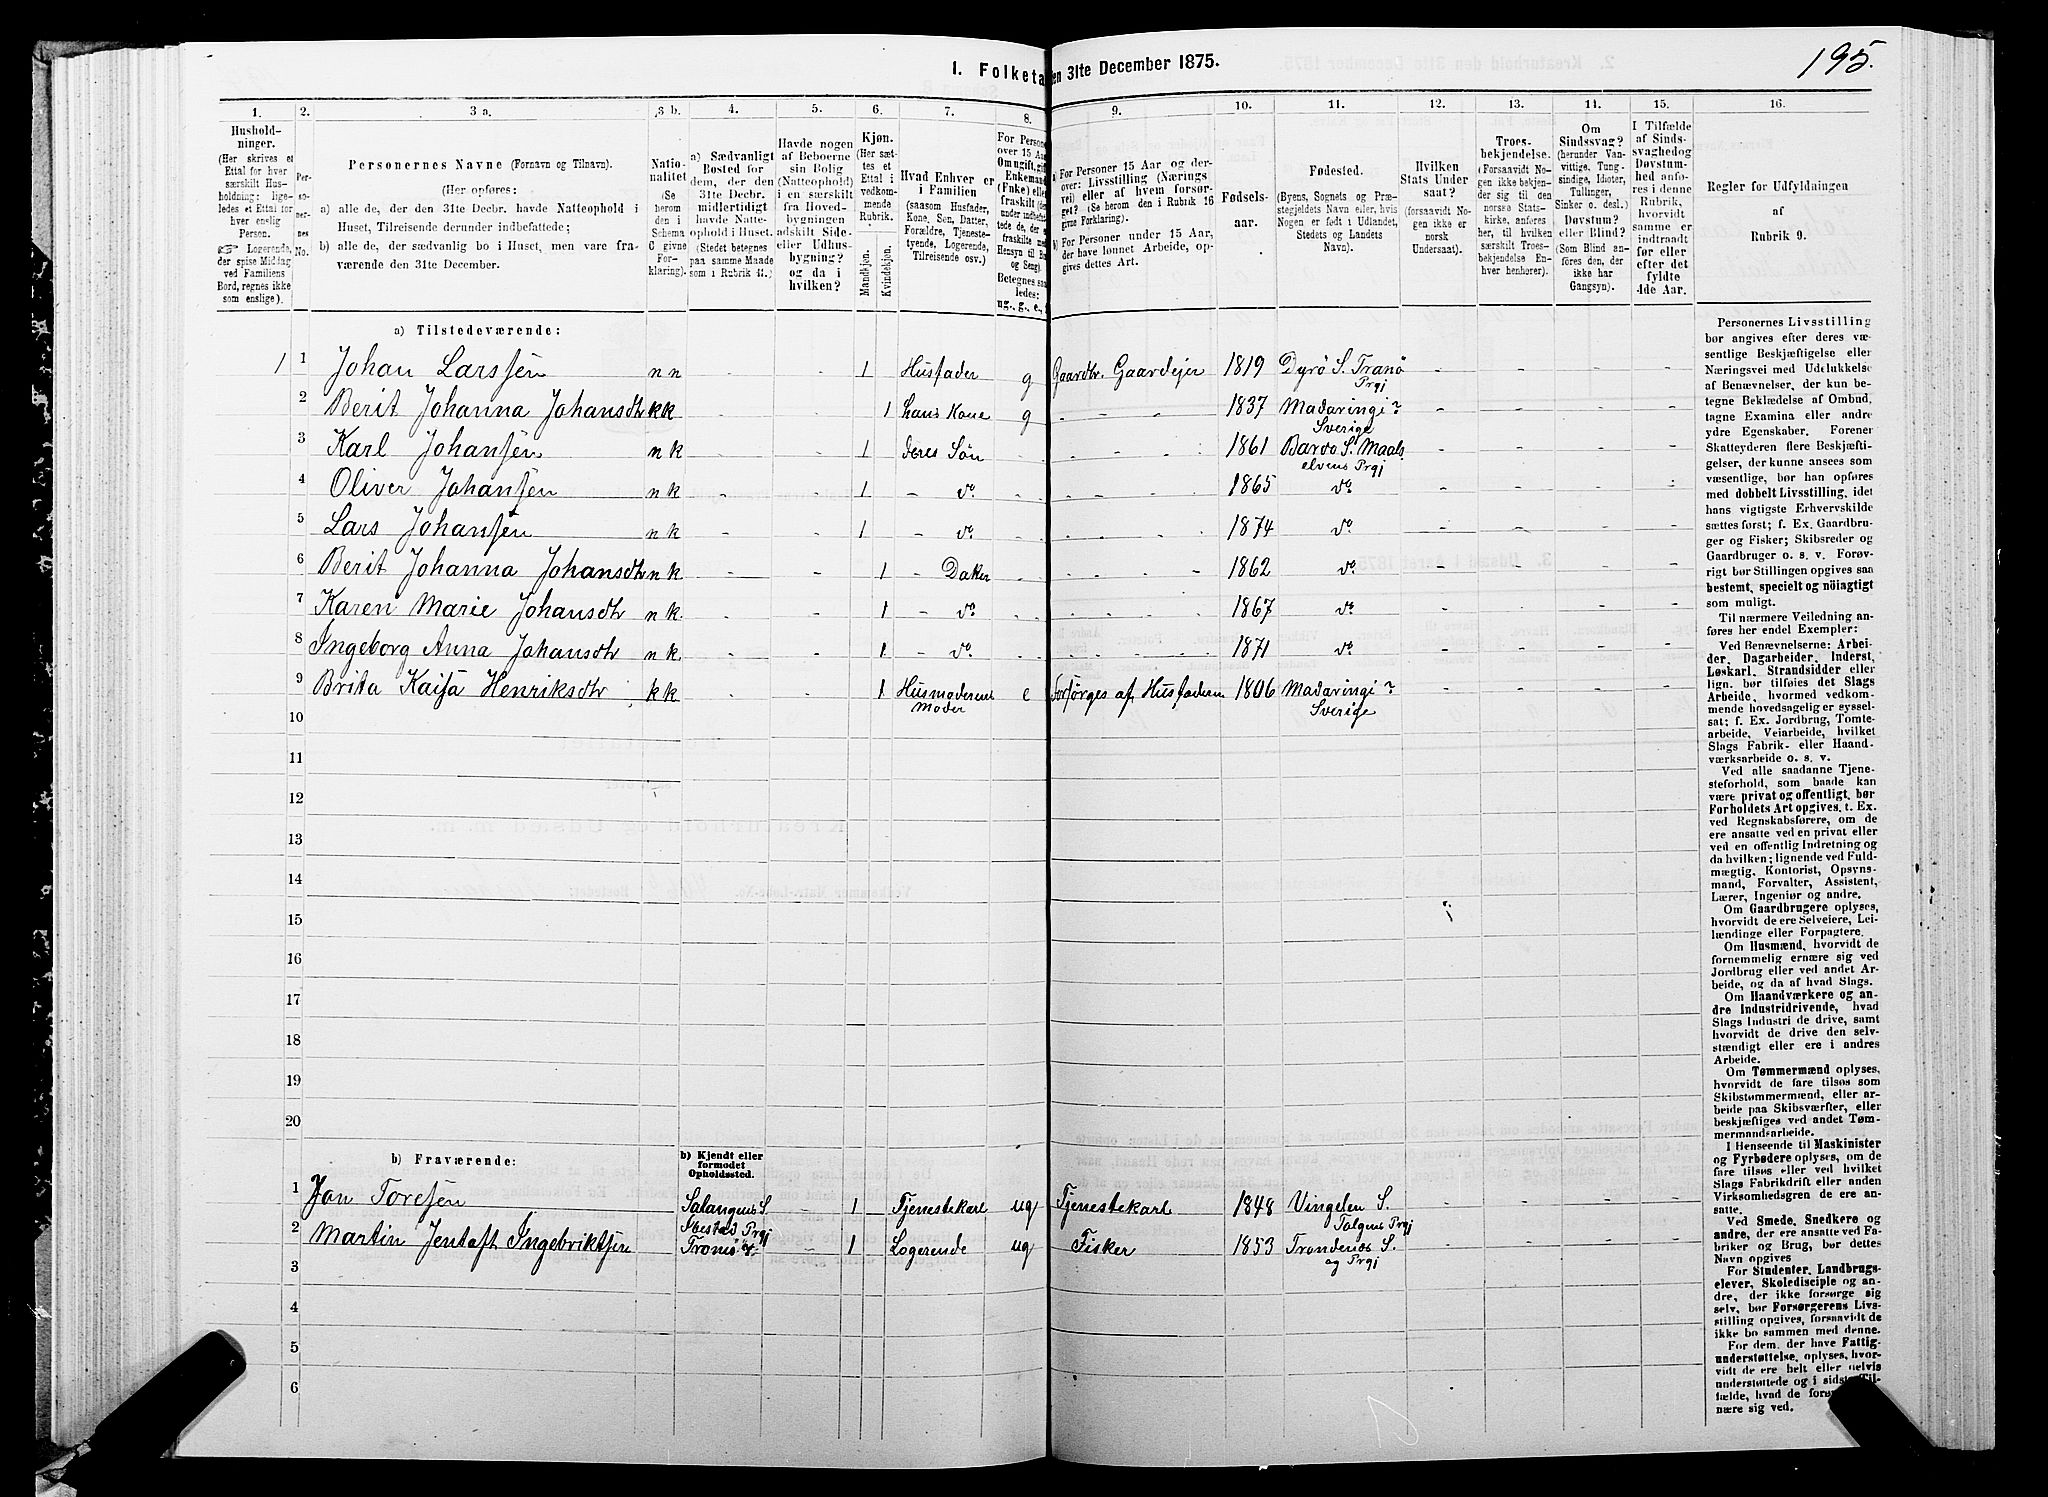 195.
1. Folketa en 31te December 1875.
1. 2. 3 a. 3 b. 4. 5. 6. 7. 8. 9. 10. 11. 12. 13. 14. 15. 16.
Hushold-
ninger.
(Her skrives et
Ettal for hver
særskilt Hus-
holdning; lige-
ledes et Ettal for
hver enslig
Person.
Logerende,
der spise Middag
ved Familiens
Bord, regnes ikke
som enslige).
Per-
so-
ner-
nes
No.
Personernes Navne (Fornavn og Tilnavn).
(Her opføres:
a) alle de, der den 31te Decbr. havde Natteophold i
Huset, Tilreisende derunder indbefattede;
b) alle de, der sædvanlig bo i Huset, men vare fra-
værende den 31te December.
Natio-
nalitet
(Se
herom
den i
Schema
C givne
For-
klaring).
a) Sædvanligt
Bosted for
dem, der den
31te Decbr.
midlertidigt
havde Natte-
ophold i Huset.
(Stedet betegnes
paa samme Maade
som i Rubrik 11.)
Havde nogen
af Beboerne
sin Bolig
(Natteophold)
i en særskilt
fra Hoved-
bygningen
adskilt Side-
eller Udhus-
bygning?
og da i
hvilken?
Kjøn.
(Her sæt-
tes et
Ettal i
vedkom-
mende
Rubrik.
Mandkjøn.
Kvindekjøn.
Hvad Enhver er
i Familien
(saasom Husfader,
Kone, Søn, Datter,
Forældre, Tjeneste-
tyende, Logerende,
Tilreisende osv.)
For Persone
over 15 Aar
Om ugift, gift
Enkemand
(Enke) elle
fraskilt (de
under indbefat-
tede de, der
fraskilte me
Hensyn til Bo
og Seng).
Betegnes saa
ledes:
ug., g., e., f
a) For Personer 15 Aar og der-
over: Livsstilling (Nærings
vei) eller af hvem forsør-
get? (Se herom i Rubrik 16
givne Forklaring).
b) For Personer under 15 Aar,
der have lønnet Arbeide, op-
gives dettes Art.
Fødsels-
aar.
Fødested.
(Byens, Sognets og Præ-
stegjeldets Navn eller, hvis
Nogen er født i Udlandet,
Stedets og Landets
Navn).
Hvilken
Stats Under
saat?
(forsaavidt No-
gen ikke er
norsk
Undersaat).
Troes-
bekjendelse.
(Forsaavidt No-
gen ikke bekjen-
der sig til den
norske Stats-
kirke, anføres
her, til hvilken
særskilt Troes-
bekjendelse En-
hver henhører).
Om
Sindssvag?
(herunder Van-
vittige, Tung-
sindige, Idioter,
Tullinger,
Sinker o. desl.)
Døvstum?
eller Blind?
(Som Blind an-
føres den, der
ikke har
Gangsyn).
I Tilfælde
af Sinds-
svaghed og
Døvstum-
hed anfø-
res i denne
Rubrik,
hvorvidt
samme er
indtraadt
før eller
efter det
fyldte
4de Aar.
Regler for Udfyldningen
af
Rubrik 9.
a) Tilstedeværende:
1 1 Johan Larssen n n - - 1 Husfader g Gaardbr. Gaardejer 1819 Dyrö S. Tranö Prgj
2 Berit Johanna Johansdtr k k - - 1 hans Kone g - - - 1837 Madaringi? Sverige - - - -
3 Karl Johansen n k - - 1 deres Søn - - - - 1861 Bardo S. Maals elvens Prgj - - - -
4 Oliver Johansen n k - - 1 - do - - - - 1865 do - - - -
5 Lars Johansen n k - - 1 - do - - - - 1874 do - - - -
6 Berit Johanna Johansdtr n k - - 1 - Datter - - - - 1862 do - - - -
7 Karen Marie Johansdtr n k - - 1 - do - - - - 1867 do - - - -
8 Ingeborg Anna Johansdtr n k - - 1 - do - - - - 1871 do - - - -
9 Brita Kaisa Henriksdtr k k - - 1 Husmoderens Moder e Forsørges af Husfaderen 1806 Madaringi? Sverige - - - -
10
11
12
13
14
15
16
17
18
19
20
b) Fraværende:
b) Kjendt eller
formodet
Opholdssted.
1 Jon Toresen Salangens S Ibestad Prgj - 1 Tjenestekarl ug Tjenestekarl 1848 Vingelen S. Tolgens Prgj - - - -
2 Martin Jentoft Ingebriktsen Tromsö - 1 Logerende ug Fisker 1853 Trondenæs S. og Prgj - - - -
3
4
5
6
Personernes Livsstilling
bør angives efter deres væ-
sentlige Beskjæftigelse eller
Næringsvei med Udelukkelse
af Benævnelser, der kun be-
tegne Beklædelse af Ombud,
tagne Examina eller andre
ydre Egenskaber. Forener
Skatteyderen flere Beskjæfti-
gelser, der kunne ansees som
væsentlige, bør han opføres
med dobbelt Livsstilling, idet
hans vigtigste Erhvervskilde
sættes først; f. Ex. Gaardbru-
ger og Fisker; Skibsreder og
Gaardbruger o. s. v. Forøv-
rigt bør Stillingen opgives saa
bestemt, specielt og nöiagtigt
som muligt.
Til nærmere Veiledning an-
føres her endel Exempler:
Ved Benævnelserne: Arbei-
der, Dagarbeider, Inderst,
Løskarl, Strandsidder eller
lign. bør tilføies det Slags
Arbeide, hvormed vedkom-
mende hovedsagelig er syssel-
sat; f. Ex. Jordbrug, Tomte-
arbeide, Veiarbeide, hvilket
Slags Fabrik- eller Haand-
værksarbeide o. s. v.
Ved alle saadanne Tjene-
steforhold, som baade kan
være privat og offentligt, bør
Forholdets Art opgives, t. Ex.
ved Regnskabsførere, om de
ere ansatte ved en privat eller
ved en offentlig Indretning og
da hvilken; lignende ved Fuld-
mægtig, Kontorist, Opsyns-
mand, Forvalter, Assistent,
Lærer, Ingeniør og andre.
Om Gaardbrugere oplyses,
hvorvidt de ere Selveiere, Lei-
lændinge eller Forpagtere.
Om Husmænd, hvorvidt de
fornemmelig ernære sig ved
Jordbrug eller ved andet Ar-
beide, og da af hvad Slags.
Om Haandværkere og an-
dre Industridrivende, hvad
Slags Industri de drive, samt
hvorvidt de drive den selv-
stændigt eller ere i andres
Arbeide.
Om Tømmermænd oplyses,
hvorvidt de fare tilsøs som
Skibstømmermænd, eller ar-
beide paa Skibsværfter, eller
beskjæftiges ved andet Tøm-
mermandsarbeide.
I Henseende til Maskinister
og Fyrbødere oplyses, om de
fare tilsøs eller ved hvilket
Slags Fabrikdrift eller anden
Virksomhedsgren de ere an-
satte.
Ved Smede, Snedkere og
andre, der ere ansatte ved Fa-
briker og Brug, bør dettes
Navn opgives
For Studenter, Landbrugs-
elever, Skoledisciple og an-
dre, der ikke forsørge sig
selv, bør Forsørgerens Livs-
stilling opgives, forsaavidt de
ikke bo sammen med denne.
For dem, der have Fattig-
understøttelse, oplyses, hvor-
vidt de ere helt eller delvis
understøttede og i sidste Til-
fælde, hvad de forø
nære sig ved.